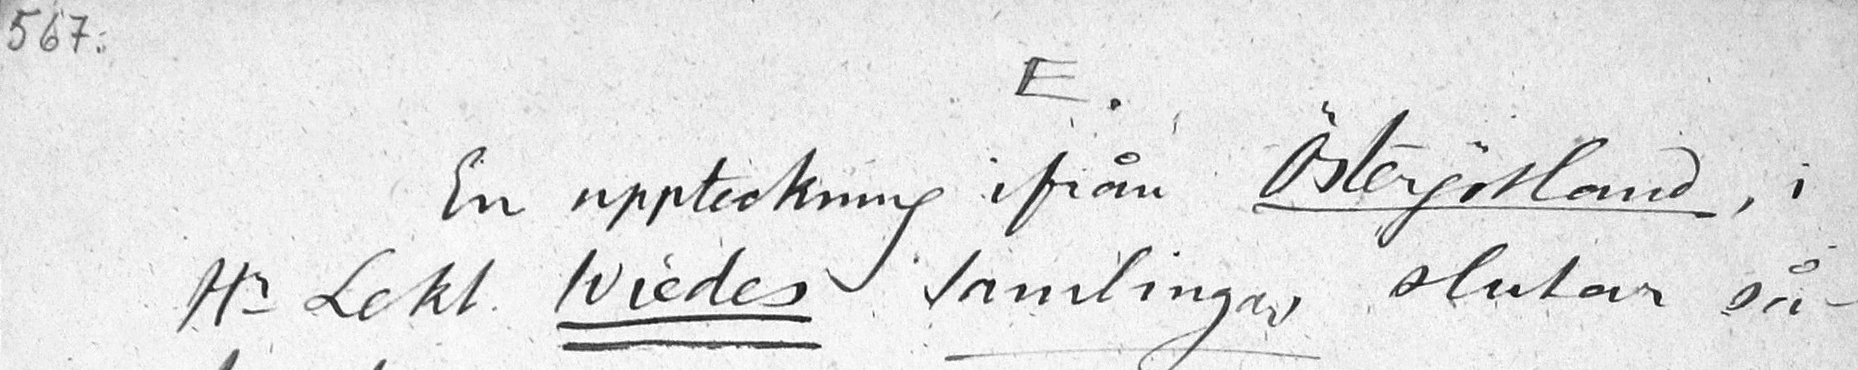 567.
E.
En uppteckning ifrån Östergötland, i
Hr Lekt. Wiedes samlingar, slutar så-